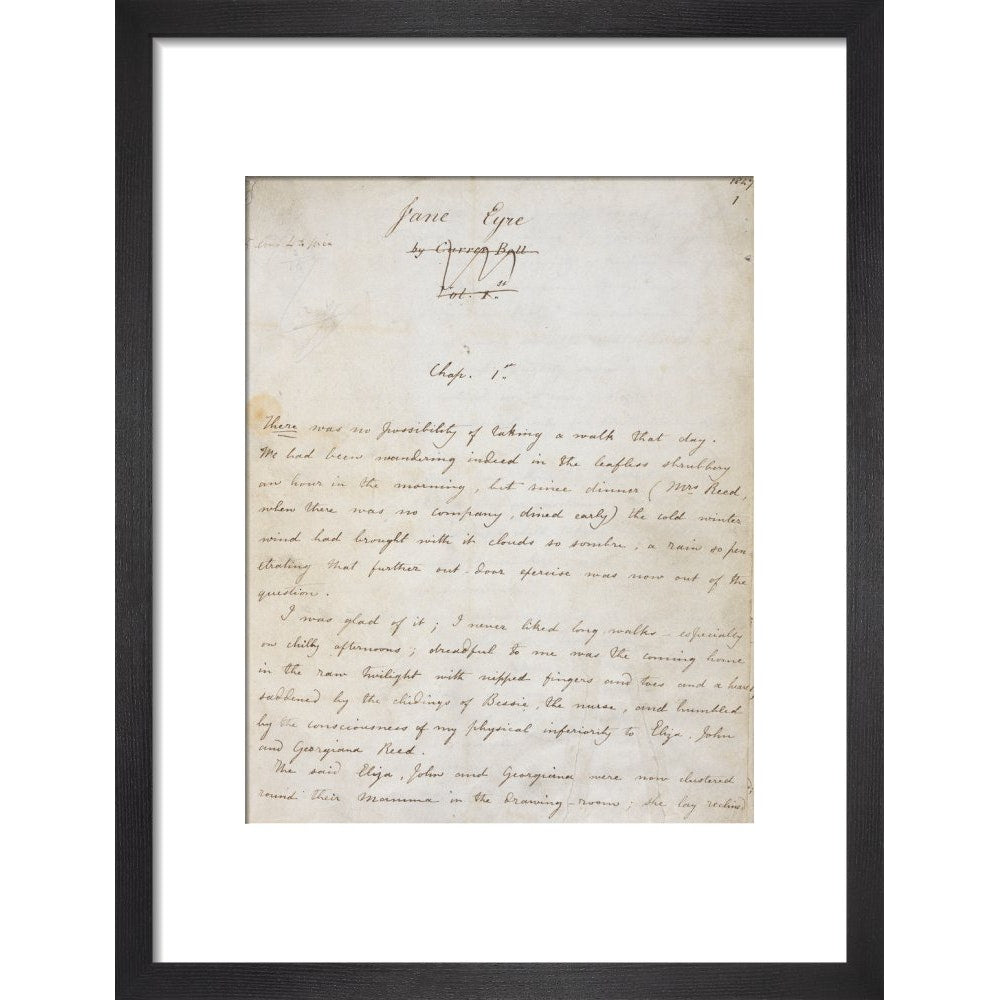 1847
1
Jane Eyre
by Currer Bell
Vol. 1.st
Chap. 1st.
There was no possibility of taking a walk that day.
We had been wandering indeed in the leafless shrubbery
an hour in the morning, but since dinner (Mrs Reed,
when there was no company, dined early) the cold winter
wind had brought with it clouds so sombre, a rain so pen
etrating that further out-door exercise was now out of the
question.
I was glad of it; I never liked long walks - especially
on chilly afternoons; dreadful to me was the coming home
in the raw twilight with nipped fingers and toes and a heart
saddened by the chidings of Bessie, the nurse, and humbled
by the consciousness of my physical inferiority to Eliza, John
and Georgiana Reed.
The said Eliza, John and Georgiana were now clustered
round their Mamma in the drawing-room; she lay reclined